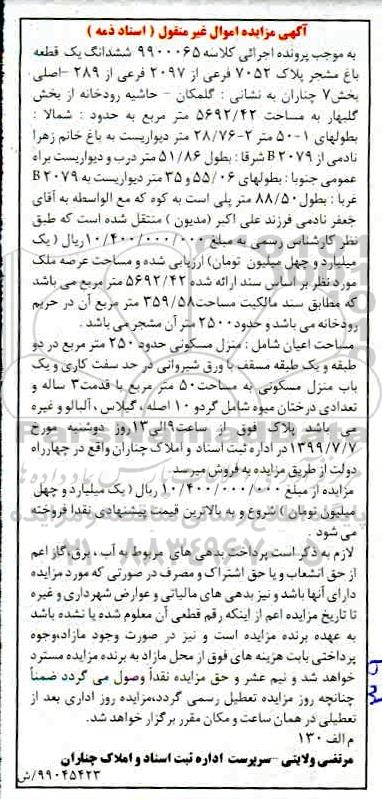 آگهی مزایده اموال غیر منقول ( اسناد ذمه )
به موجب پرونده اجرائی کلاسه ۹۹۰۰۰۶۵ ششدانگ یک قطعه
باغ مشجر پلاک ۷۰۵۲ فرعی از ۲۰۹۷ فرعی از ۲۸۹ -اصلی
بخش۷ چناران به نشانی : گلمکان - حاشیه رودخانه از بخش
گلبهار به مساحت ۵۶۹۲/۴۲ متر مربع به حدود : شمالا :
بطولهای ۱-۵۰ متر ۲-۲۸/۷۶ متر دیواریست به باغ خانم زهرا
نادمی از B ۲۰۷۹ شرقا : بطول ۵۱/۸۶ متر درب و دیواریست براه
عمومی جنوبا : بطولهای ۵۵/۰۶ و ۳۵ متر دیواریست به B ۲۰۷۹
غربا : بطول ۸۸/۵۰ متر پلی است به کوه که مع الواسطه به آقای
جعفر نادمی فرزند علی اکبر (مدیون ) منتقل شده است که طبق
نظر کارشناس رسمی به مبلغ ۱۰/۴۰۰/۰۰۰/۰۰۰ریال ( یک
میلیارد و چهل میلیون تومان) ارزیابی شده و مساحت عرصه ملک
مورد نظر بر اساس سند ارائه شده ۵۶۹۲/۴۲ متر مربع می باشد
که مطابق سند مالکیت مساحت۳۵۹/۵۸ متر مربع آن در حریم
رودخانه می باشد و حدود ۲۵۰۰ متر آن مشجر می باشد .
مساحت اعیان شامل : منزل مسکونی حدود ۲۵۰ متر مربع در دو
طبقه و یک طبقه مسقف با ورق شیروانی در حد سفت کاری و یک
باب منزل مسکونی به مساحت ۵۰ متر مربع با قدمت۳ ساله و
تعدادی درختان میوه شامل گردو ۱۰ اصله ، گیلاس ، آلبالو و غیره
می باشد پلاک فوق از ساعت۹الی۱۳روز دوشنبه مورخ
۱۳۹۹/۷/۷ در اداره ثبت اسناد و املاک چناران واقع در چهارراه
دولت از طریق مزایده به فروش میرسد.
مزایده از مبلغ ۱۰/۴۰۰/۰۰۰/۰۰۰ ریال ( یک میلیارد و چهل
میلیون تومان ) شروع و به بالاترین قیمت پیشنهادی نقدا فروخته
می شود .
لازم به ذکر است پرداخت بدهی های مربوط به آب ، برق،گاز اعم
از حق انشعاب و یا حق اشتراک و مصرف در صورتی که مورد مزایده
دارای آنها باشد و نیز بدهی های مالیاتی و عوارض شهرداری و غیره
تا تاریخ مزایده اعم از اینکه رقم قطعی آن معلوم شده یا نشده باشد
به عهده برنده مزایده است و نیز در صورت وجود مازاد،وجوه
پرداختی بابت هزینه های فوق از محل مازاد به برنده مزایده مسترد
خواهد شد و نیم عشر و حق مزایده نقداً وصول می گردد ضمناً
چنانچه روز مزایده تعطیل رسمی گردد،مزایده روز اداری بعد از
تعطیلی در همان ساعت و مکان مقرر برگزار خواهد شد.
م الف ۱۳۰
مرتضی ولایتی -سرپرست اداره ثبت اسناد و املاک چناران
۹۹۰۴۵۴۲۳/ش